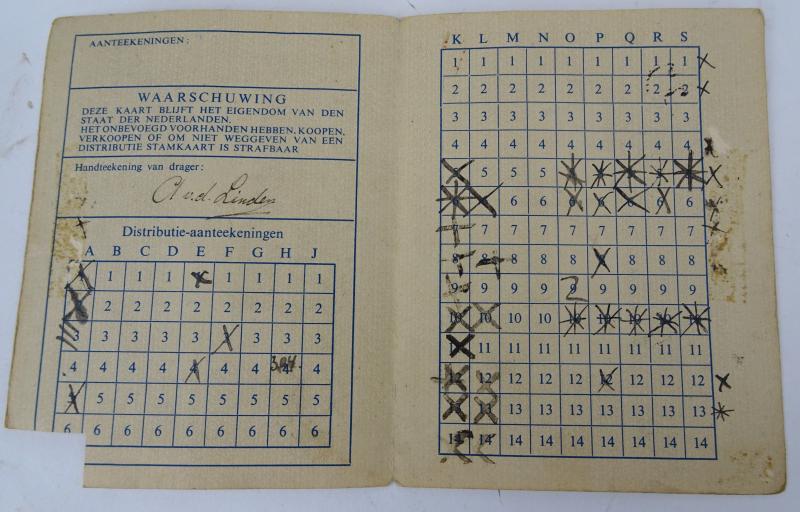 AANTEEKENINGEN:
WAARSCHUWING
DEZE KAART BLIJFT HET EIGENDOM VAN DEN
STAAT DER NEDERLANDEN.
HET ONBEVOEGD VOORHANDEN HEBBEN, KOOPEN,
VERKOOPEN OF OM NIET WEGGEVEN VAN EEN
DISTRIBUTIE STAMKAART IS STRAFBAAR
Handteekening van drager:
A v.d. Linden
Distributie-aanteekeningen
A B C D E F G H J
1 1 1 1 1 1 1 1
2 2 2 2 2 2 2 2
3 3 3 3 3 3 3 3 3
4 4 4 4 4 4 4 4
5 5 5 5 5 5 5 5
6 6 6 6 6 6 6 6 6
K L M N O P Q R S
1 1 1 1 1 1 1 1 1
2 2 2 2 2 2 2 2 2
3 3 3 3 3 3 3 3 3
4 4 4 4 4 4 4 4 4
5 5 5
6 6 6 6 6 6 6
7 7 7 7 7 7 7 7
8 8 8 8 8 8 8 8
9 9 9 9 2 9 9 9 9
10 10 10 10
11 11 11 11 11 11 11 11
12 12 12 12 12 12 12 12 12
13 13 13 13 13 13 13 13
14 14 14 14 14 14 14 14 14